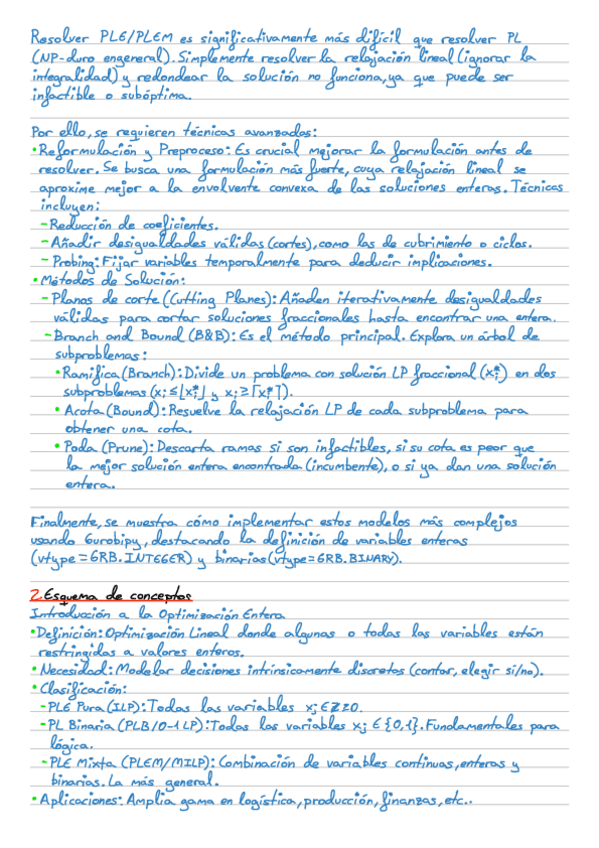 Resolver PLE/PLEM es significativamente más difícil que resolver PL
(NP-duro engeneral). Simplemente resolver la relajación lineal (ignorar la
integralidad) y redondear la solución no funciona, ya que puede ser
infactible o subóptima.
Por ello, se requieren técnicas avanzadas:
• Reformulación y Preproceso: Es crucial mejorar la formulación antes de
resolver. Se busca una formulación más fuerte, cuya relajación lineal se
aproxime mejor a la envolvente convexa de las soluciones enteras. Técnicas
incluyen:
- Reducción de coeficientes.
- Añadir desigualdades válidas (cortes), como las de cubrimiento o ciclos.
- Probing: Fijar variables temporalmente para deducir implicaciones.
• Métodos de Solución:
- Planos de corte (Cutting Planes): Añaden iterativamente desigualdades
válidas para cortar soluciones fraccionales hasta encontrar una entera.
- Branch and Bound (B&B): Es el método principal. Explora un árbol de
subproblemas:
• Ramifica (Branch): Divide un problema con solución LP fraccional (xᵢ*) en dos
subproblemas (xᵢ ≤ ⌊xᵢ*⌋ y xᵢ ≥ ⌈xᵢ*⌉).
• Acota (Bound): Resuelve la relajación LP de cada subproblema para
obtener una cota.
• Poda (Prune): Descarta ramas si son infactibles, si su cota es peor que
la mejor solución entera encontrada (incumbente), o si ya dan una solución
entera.
Finalmente, se muestra cómo implementar estos modelos más complejos
usando Gurobipy, destacando la definición de variables enteras
(vtype = GRB.INTEGER) y binarias (vtype = GRB.BINARY).
2. Esquema de conceptos
Introducción a la Optimización Entera
• Definición: Optimización Lineal donde algunas o todas las variables están
restringidas a valores enteros.
• Necesidad: Modelar decisiones intrínsicamente discretas (contar, elegir si/no).
• Clasificación:
- PLE Pura (ILP): Todas las variables xⱼ ∈ ℤ ≥ 0.
- PL Binaria (PLB/0-1 LP): Todas las variables xⱼ ∈ {0,1}. Fundamentales para
lógica.
- PLE Mixta (PLEM/MILP): Combinación de variables continuas, enteras y
binarias. La más general.
• Aplicaciones: Amplia gama en logística, producción, finanzas, etc..